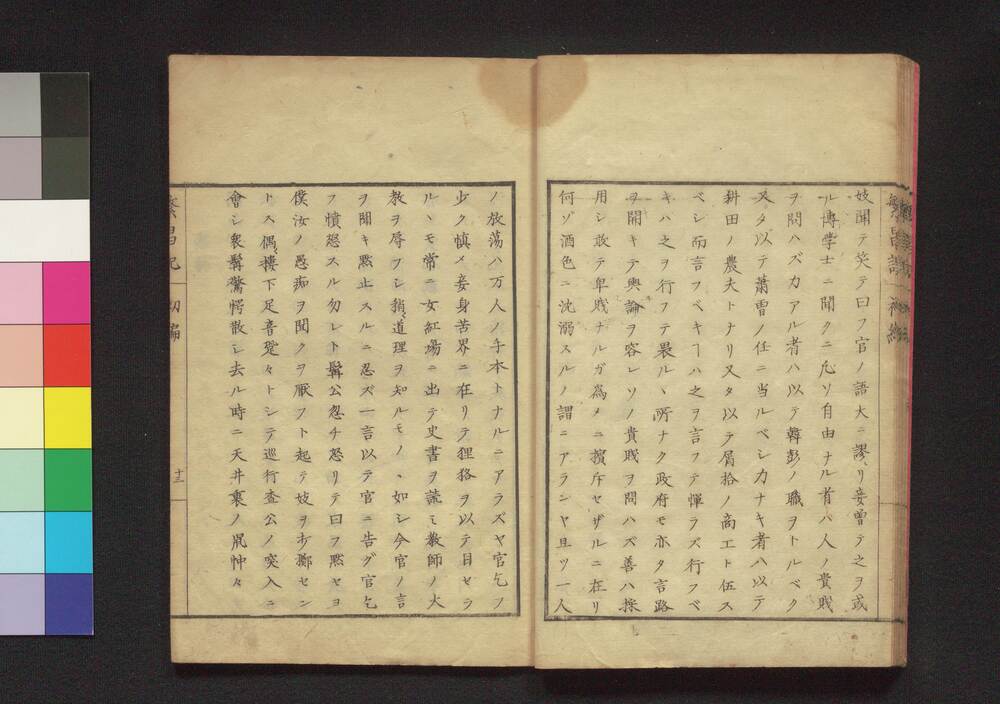 妓聞テ笑テ曰フ官ノ語大ニ謬リ妾曽テ之ヲ或
ル博学士ニ聞クニ凡ソ自由ナル者ハ人ノ貴賎
ヲ問ハズカアル者ハ以テ韓彭ノ職ヲトルベク
又タ以テ蕭曹ノ任ニ当ルベシ力ナキ者ハ以テ
耕田ノ農夫トナリ又タ以テ屑拾ノ商工ト伍ス
ベシ而言フベキヿハ之ヲ言フテ憚ラズ行フベ
キハ之ヲ行フテ畏ルヽ所ナク政府モ亦タ言路
ヲ開キテ輿論ヲ容レソノ貴賎ヲ問ハズ善ハ採
用シ敢テ卑賎ナルガ為メニ擯斥セザルニ在リ
何ゾ酒色ニ沈溺スルノ謂ニアランヤ且ツ一人
ノ放蕩ハ万人ノ手本トナルニアラズヤ官乞フ
少ク慎メ妾身苦界ニ在リテ狸狢ヲ以テ目セラ
ルヽモ常ニ女紅場ニ出テ史書ヲ読ミ教師ノ大
教ヲ辱フシ稍道理ヲ知ルモノヽ如シ今官ノ言
ヲ聞キ黙止スルニ忍ズ一言以テ官ニ告グ官乞
フ憤怒スル勿レト髯公忽チ怒リテ曰フ黙セヨ
僕汝ノ愚痴ヲ聞クヲ厭フト起テ妓ヲ打擲セン
トス偶楼下足音跫々トシテ巡行査公ノ突入ニ
會シ衆髯驚愕散シ去ル時ニ天井裏ノ鼠忡々
繁昌記 初編
十三